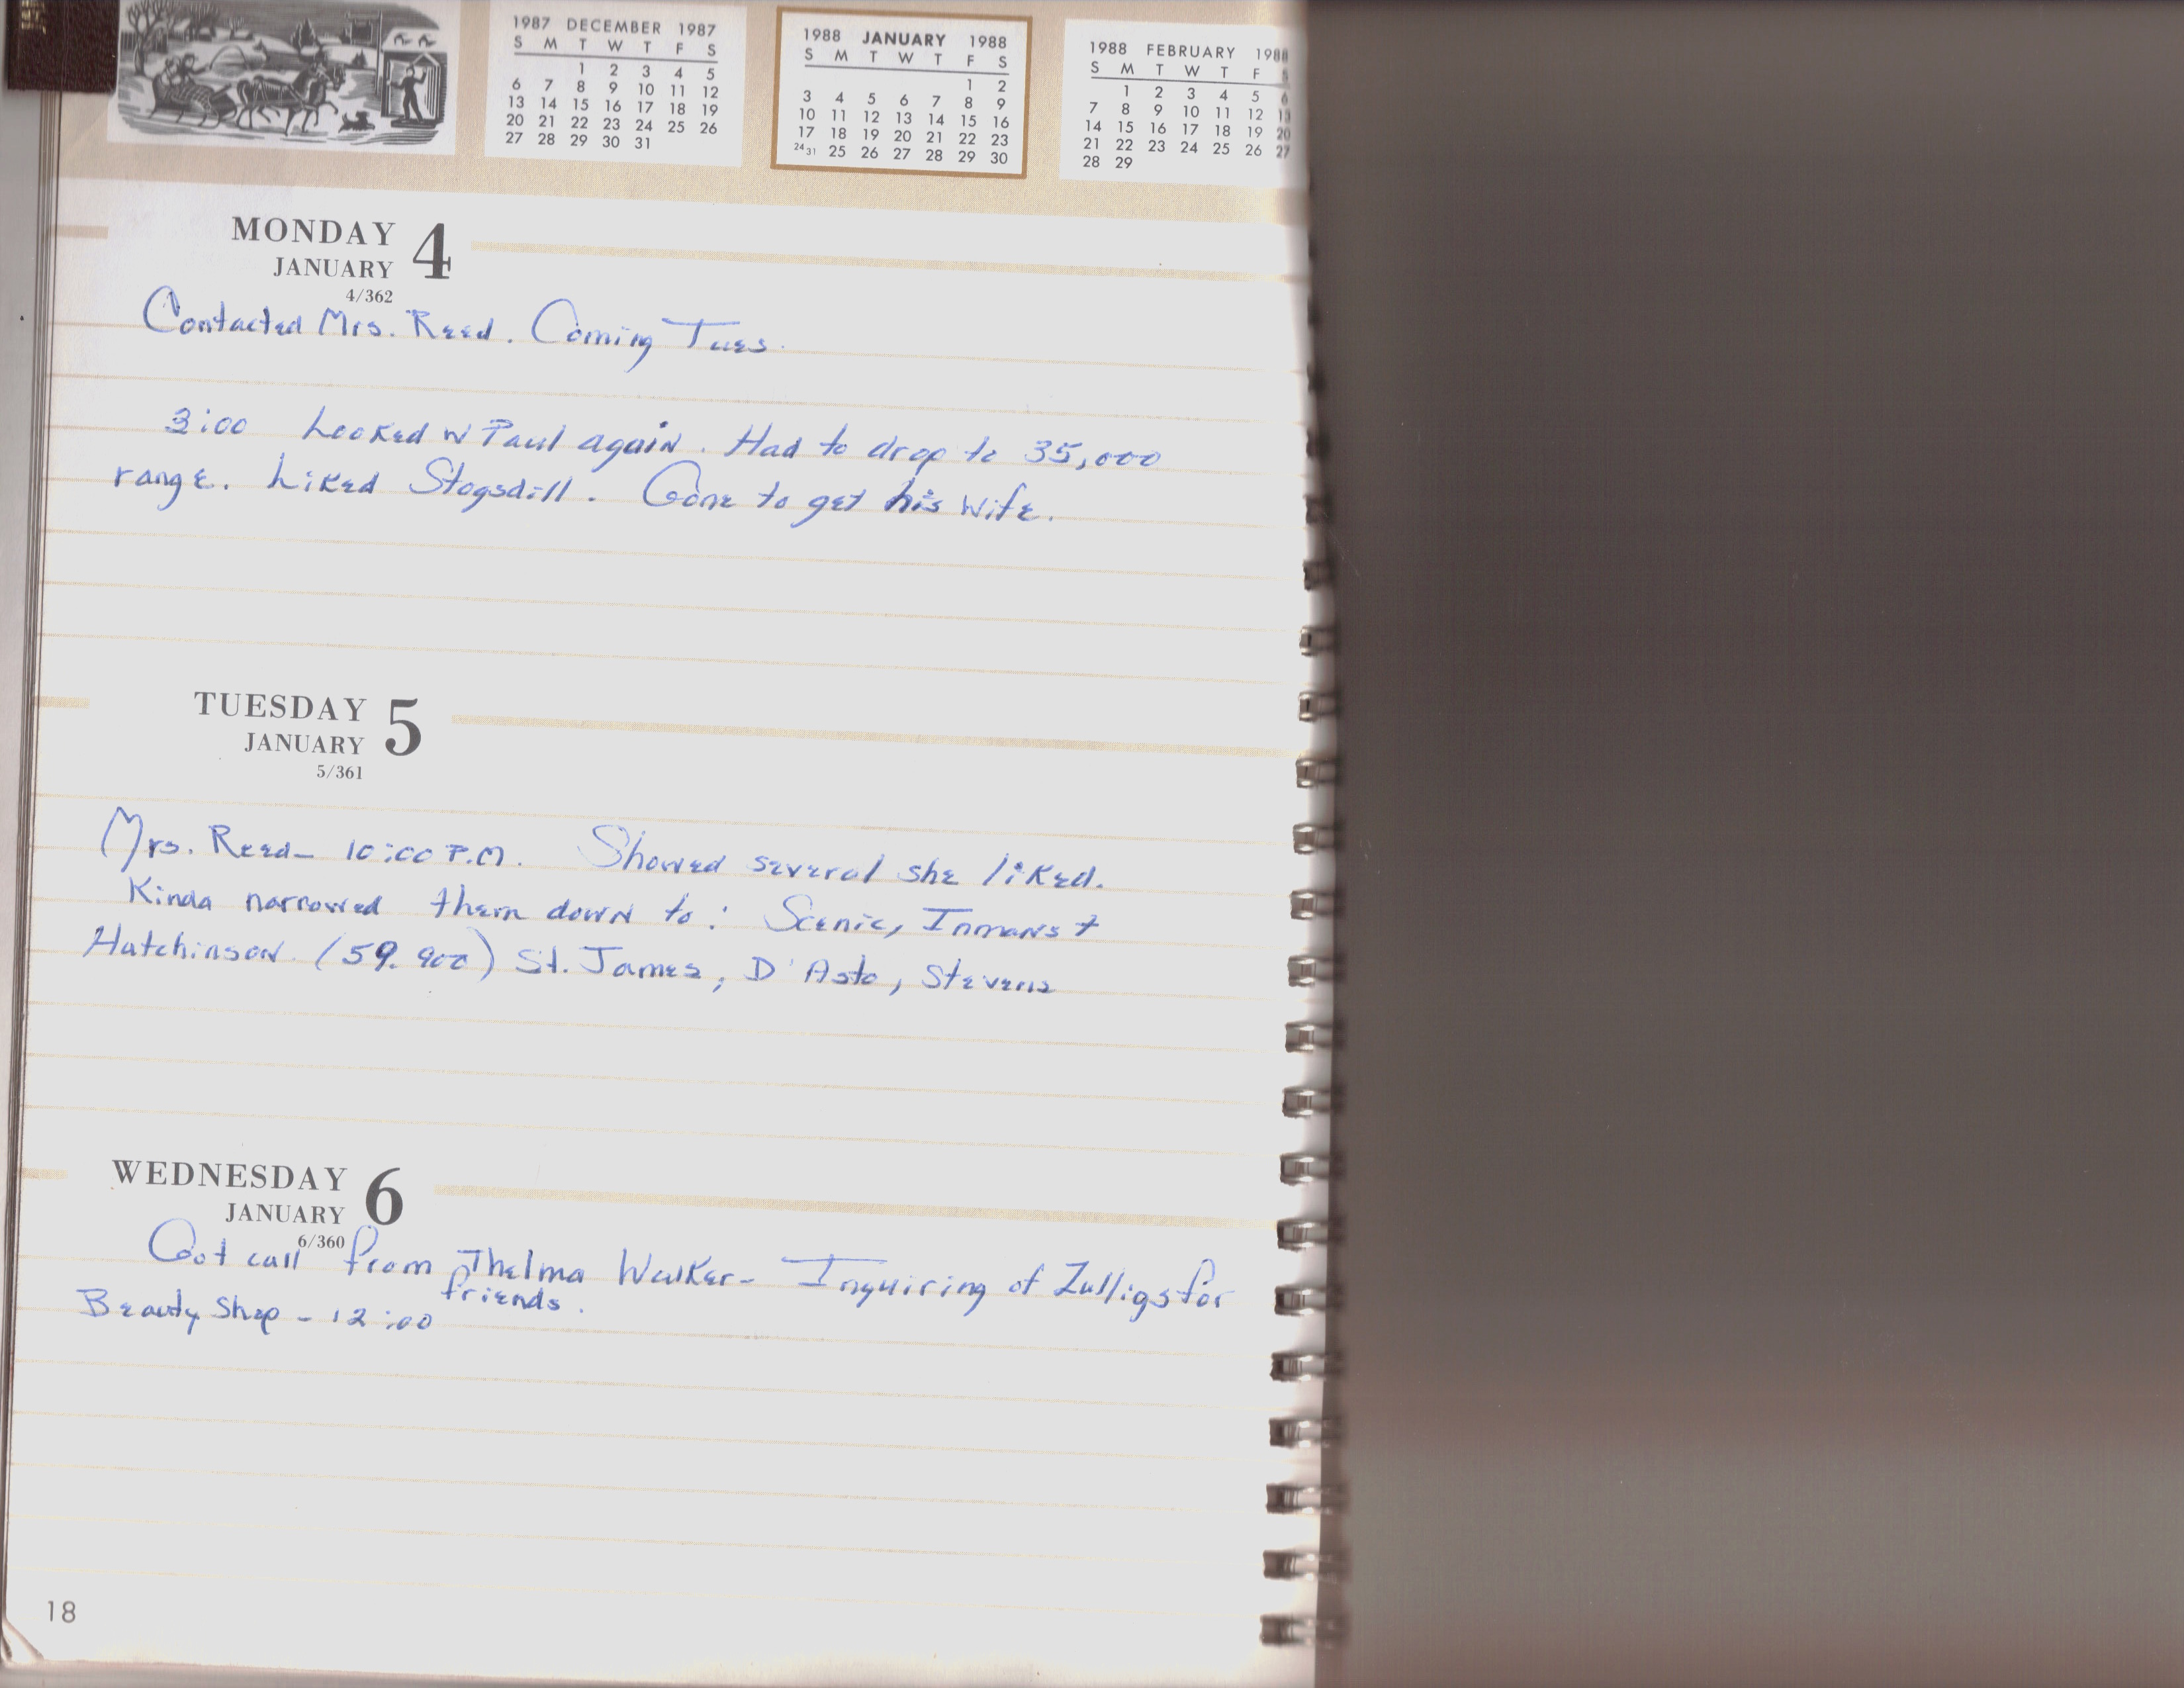 1987 DECEMBER 1987
S M T W T F S
1 2 3 4 5
6 7 8 9 10 11 12
13 14 15 16 17 18 19
20 21 22 23 24 25 26
27 28 29 30 31
1988 JANUARY 1988
S M T W T F S
1 2
3 4 5 6 7 8 9
10 11 12 13 14 15 16
17 18 19 20 21 22 23
24 31 25 26 27 28 29 30
1988 FEBRUARY 1988
S M T W T F S
1 2 3 4 5 6
7 8 9 10 11 12 13
14 15 16 17 18 19 20
21 22 23 24 25 26 27
28 29
MONDAY 4
JANUARY
4/362
Contacted Mrs. Reed. Coming Tues.
3:00 Looked w Paul again. Had to drop to 35,000
range. Liked Stogsdill. Gone to get his wife.
TUESDAY 5
JANUARY
5/361
Mrs. Reed- 10:00 P.M. Showed several she liked.
Kinda narrowed them down to: Scenic, Inmans +
Hutchinson. (59.900) St. James, D'Asto, Stevens
WEDNESDAY 6
JANUARY
6/360
Got call from Thelma Walker- Inquiring of Zulligs for
friends.
Beauty Shop - 12:00
18